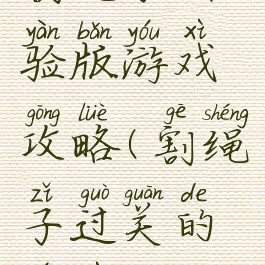 yàn bǎn yóu xì
验版游戏
gōng lüè gē shéng
攻略(割绳
zǐ guò guān de
子过关的